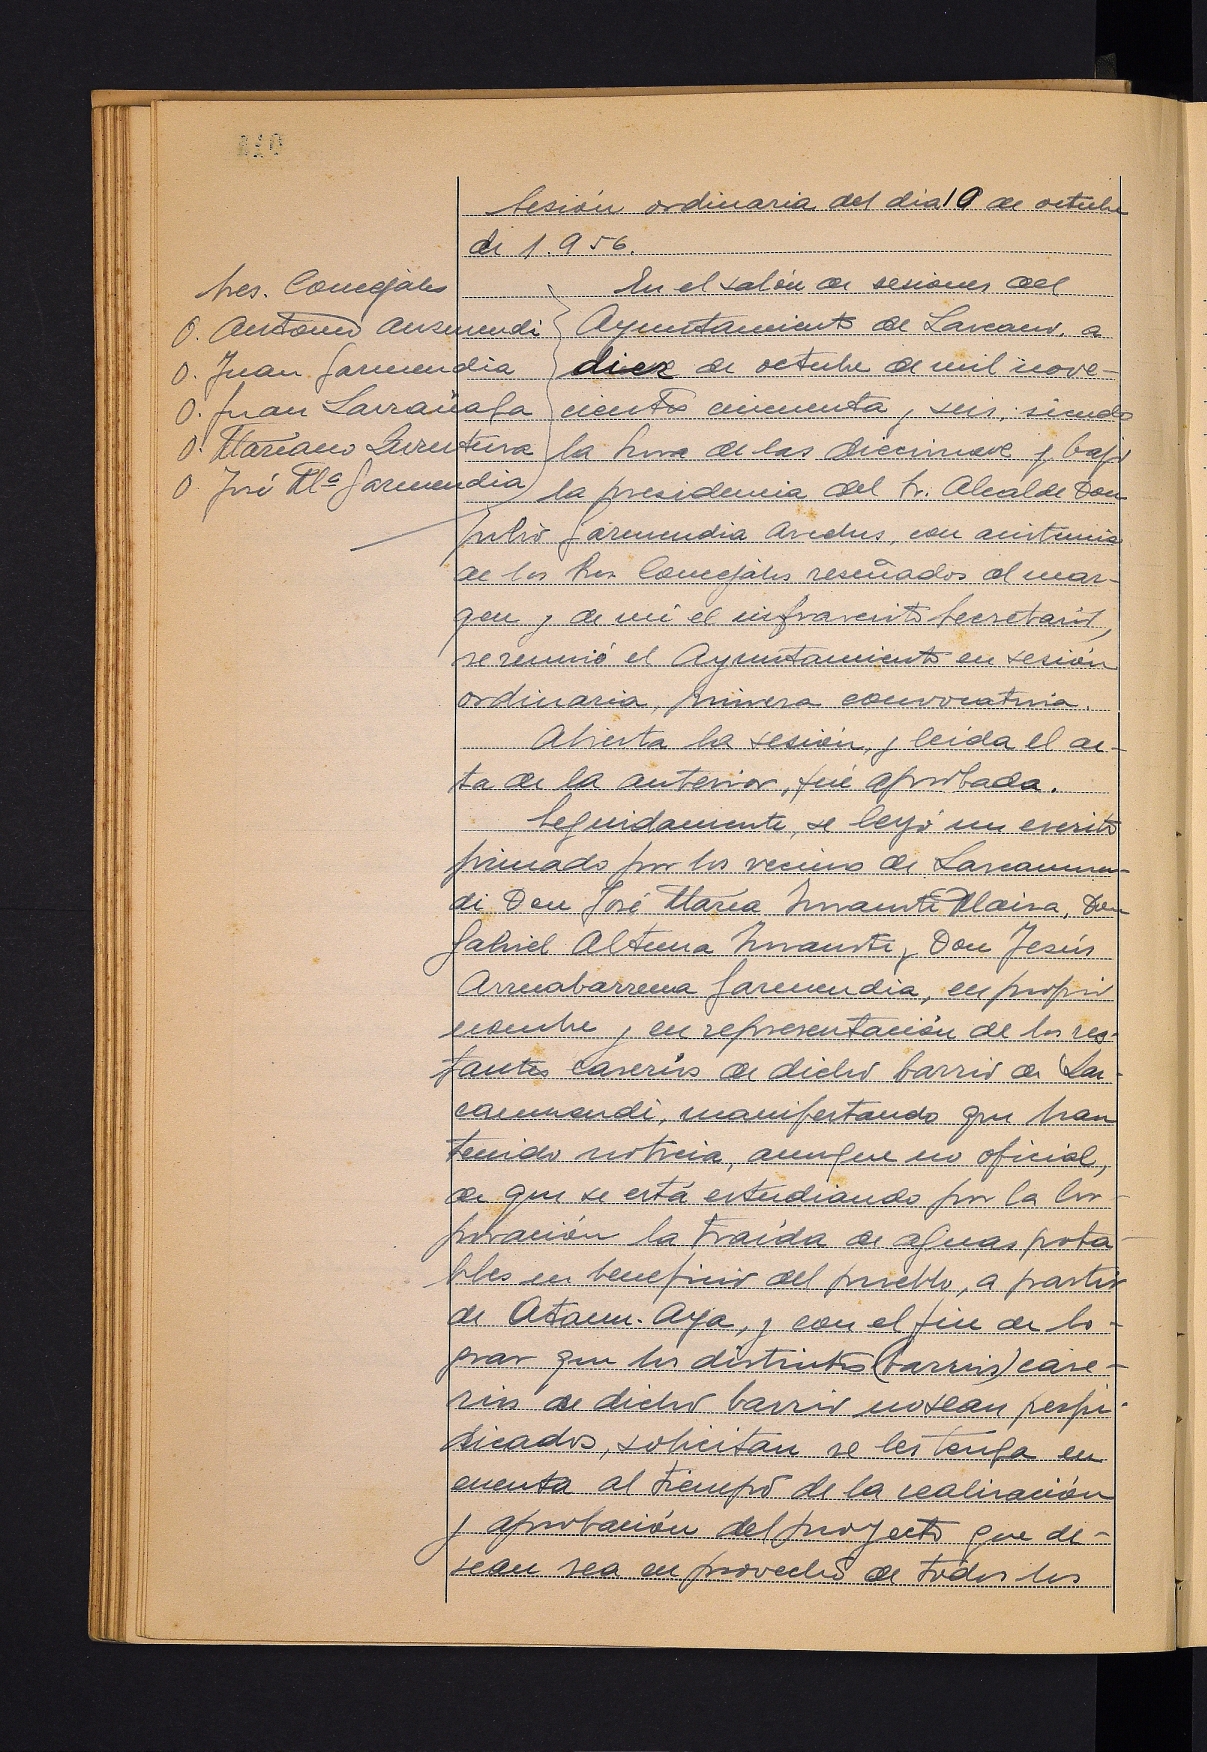 Sesión ordinaria del dia 10 de octubre
de 1.956.
Sres. Concejales
D. Antonio Auzmendi
D. Juan Garmendia
D. Juan Larrañaga
D. Mariano
D. José Mª Garmendia
En el salón de sesiones del
Ayuntamiento de Lazcano, a
diez de octubre de mil nove-
cientos cincuenta y seis, siendo
la hora de las diecinueve y bajo
la presidencia del Sr. Alcalde Don
Julio Garmendia, con asistencia
de los Sres. Concejales reseñados al mar-
gen y de mi el infrascrito Secretario,
se reunió el Ayuntamiento en sesión
ordinaria, primera convocatoria.
Abierta la sesión, y leida el ac-
ta de la anterior, fué aprobada.
Seguidamente, se leyó un escrito
firmado por los vecinos de Lazcaomen-
di Don José María, Don
Gabriel Altuna, Don Jesús
Arruabarrena Garmendia, en propio
nombre y en representación de los res-
tantes caserios de dicho barrio de Laz-
caomendi, manifestando que han
tenido noticia, aunque no oficial,
de que se está estudiando por la Cor-
poración la traída de aguas pota-
bles en beneficio del pueblo, a partir
de Ataun-Aya, y con el fin de lo-
grar que los distintos (barrios) case-
rios de dicho barrio no sean perju-
dicados, solicitan se les tenga en
cuenta al tiempo de la realización
y aprobación del proyecto que de-
sean sea en provecho de todos los